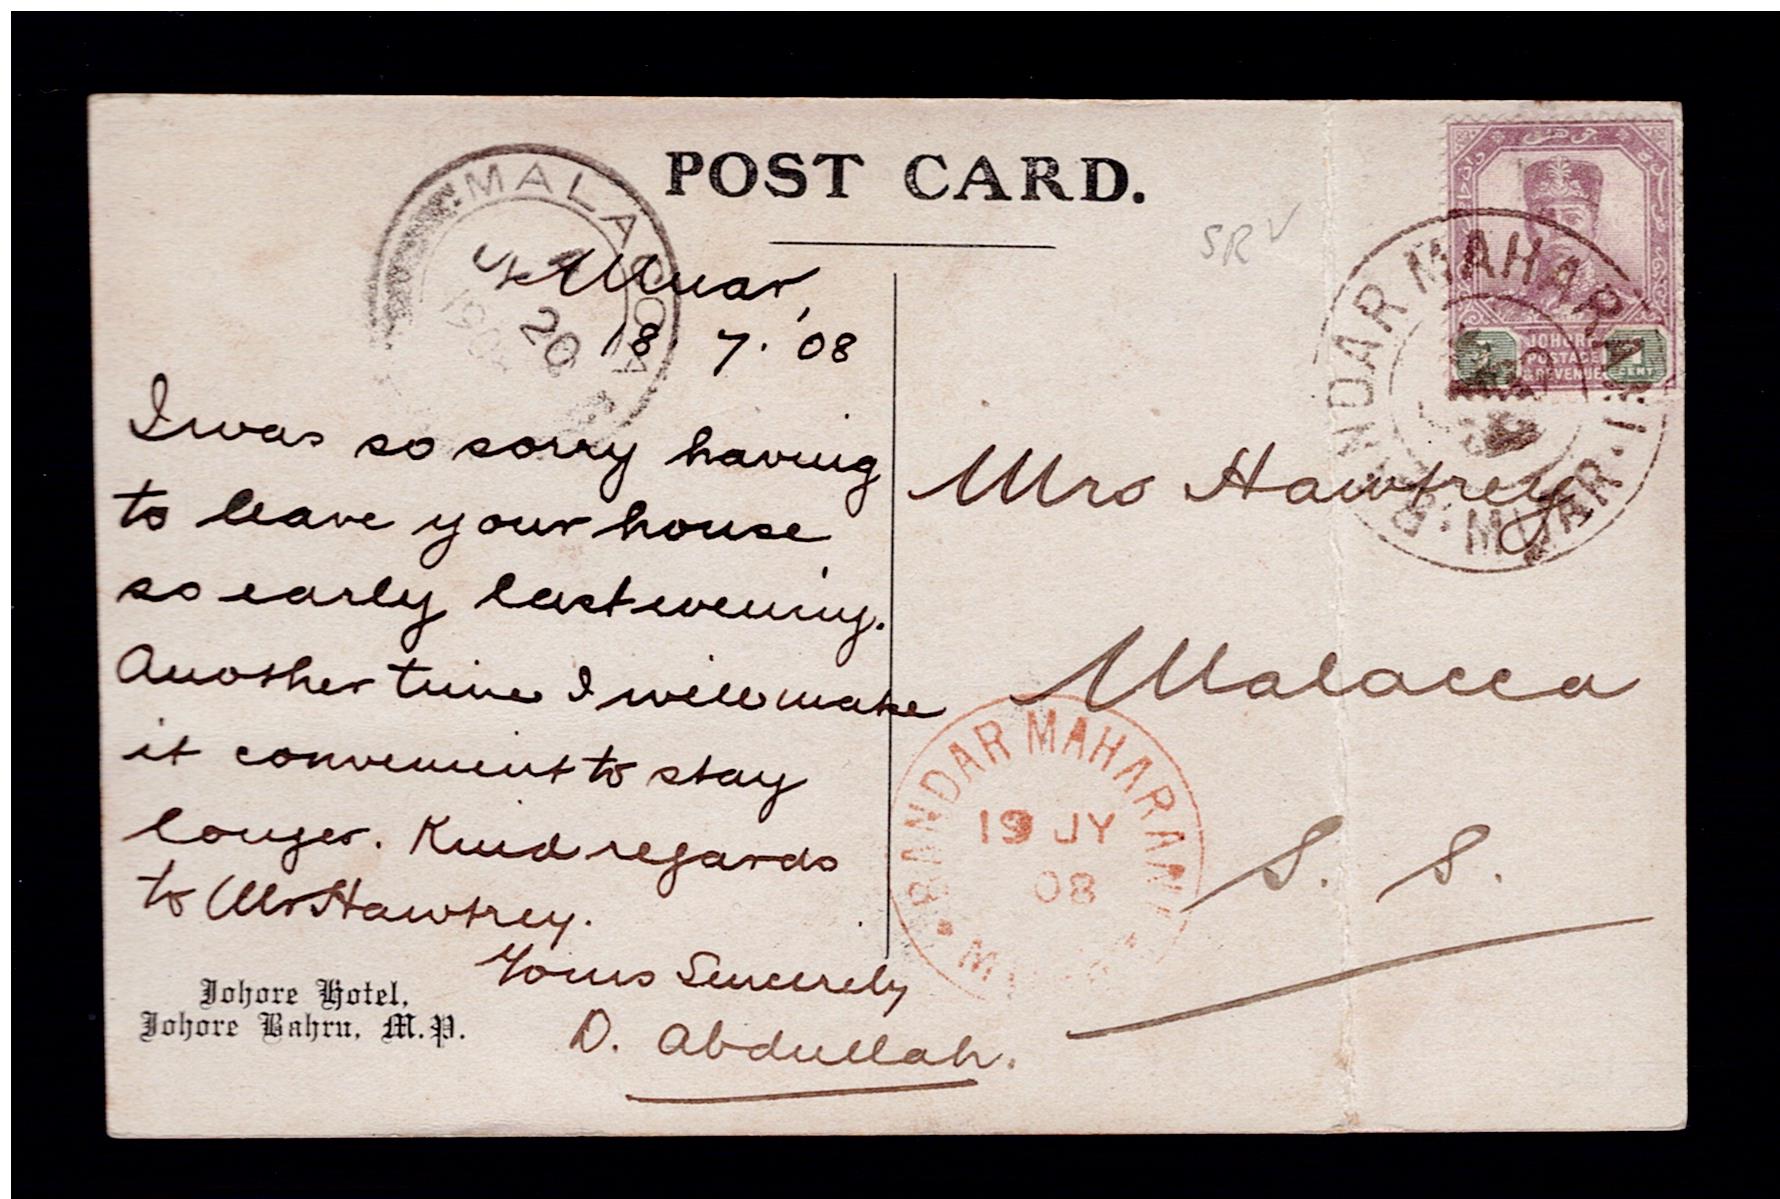 POST CARD.
SR
MALACCA
JY 20
1908
Muar,
18. 7. '08
I was so sorry having
to leave your house
so early last evening.
Another time I will make
it convenient to stay
longer. Kind regards
to Mr Hawtrey.
Yours Sincerely
D. Abdullah.
Johore Hotel,
Johore Bahru, M.P.
JOHORE
POSTAGE
& REVENUE
1
CENT
BANDAR MAHARANI
MUAR
Mrs Hawtrey
Malacca
S. S.
BANDAR MAHARANI
19 JY
08